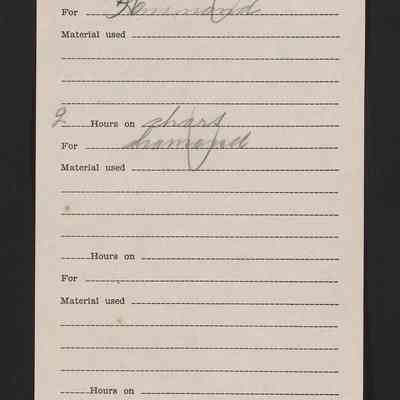 For
Material used
2 Hours on chars
For diamond
Material used
Hours on
For
Material used
Hours on